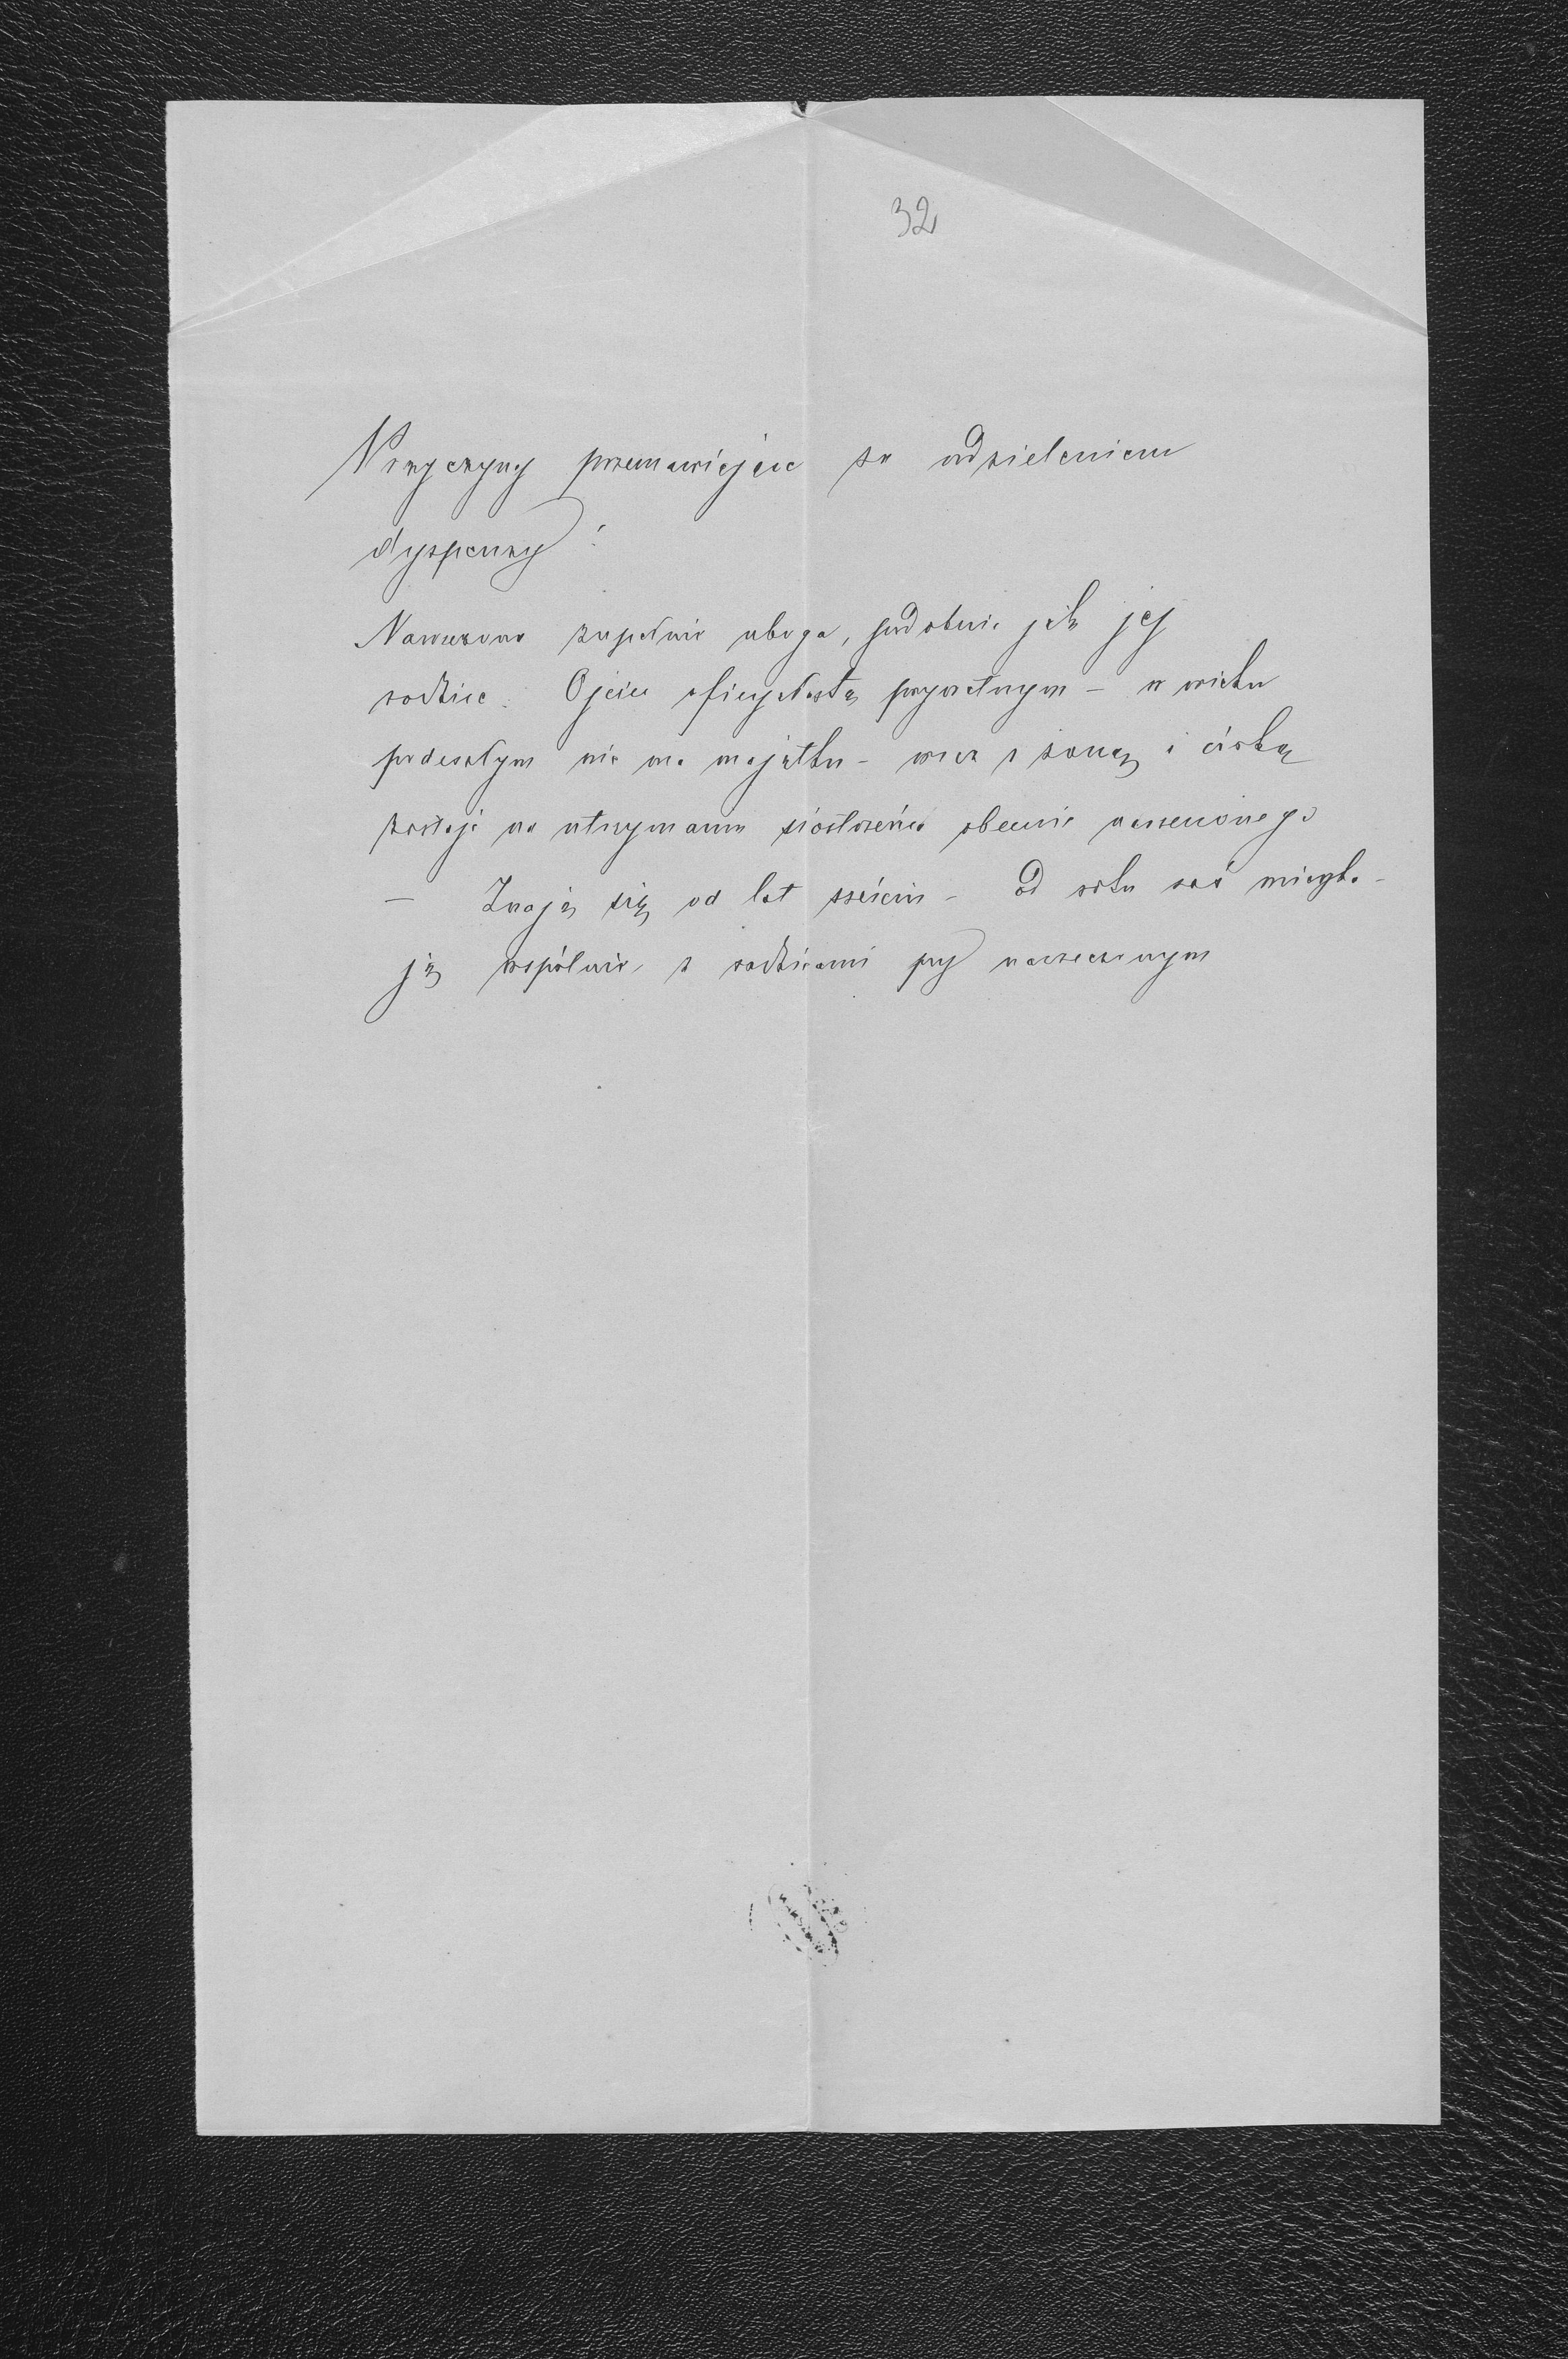 32
Przyczyny przemawiające za udzieleniem
dyspenzy :
Narzeczona zupełnie uboga, podobnie jak jej
rodzice. Ojciec oficyalistą prywatnym - w wieku
podeszłym nie ma majątku - wraz z żoną i córką
zostaje na utrzymaniu siostrzeńca obecnie narzeczonego
- Znają się od lat sześciu - od roku zaś mieszka-
ją wspólnie z rodzicami przy narzeczonym